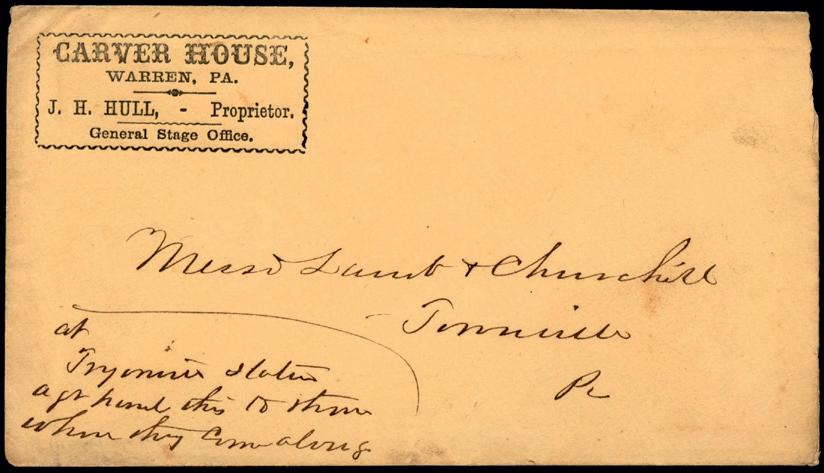 CARVER HOUSE,
WARREN, PA.
J. H. HULL, - Proprietor.
General Stage Office.
Messrs Lamb & Churchill
Townville
Pa
at
Tryonville Station
agt hand this to them
when they Come along